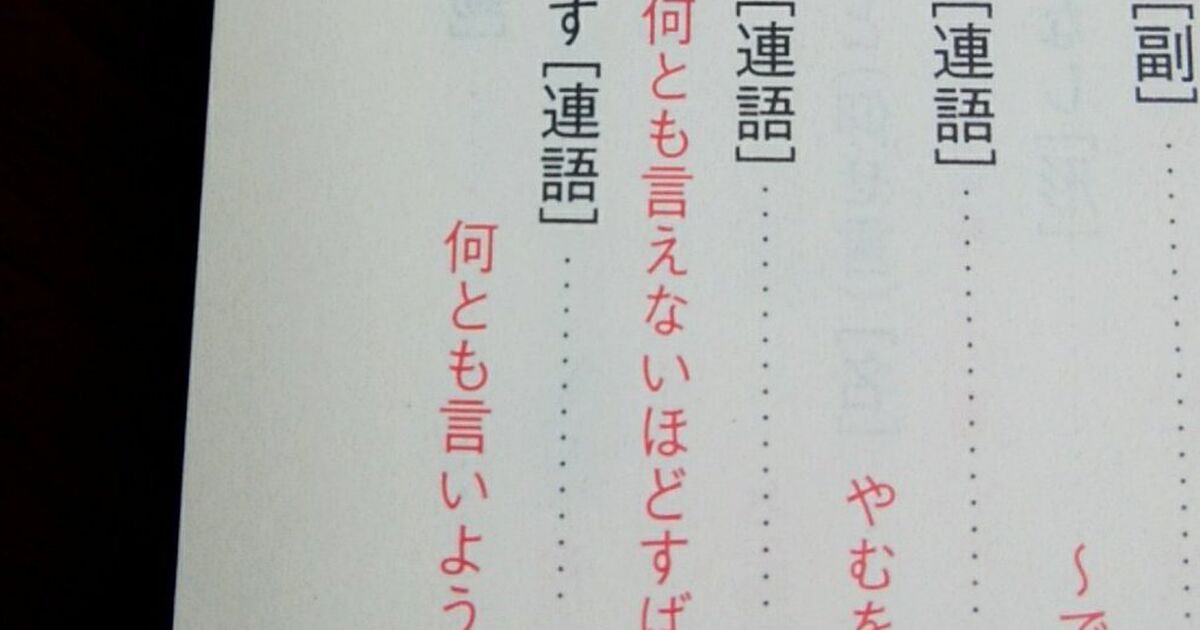 [副]
〜で
[連語]
やむを
[連語]
何とも言えないほどすば
す[連語]
何とも言いよう